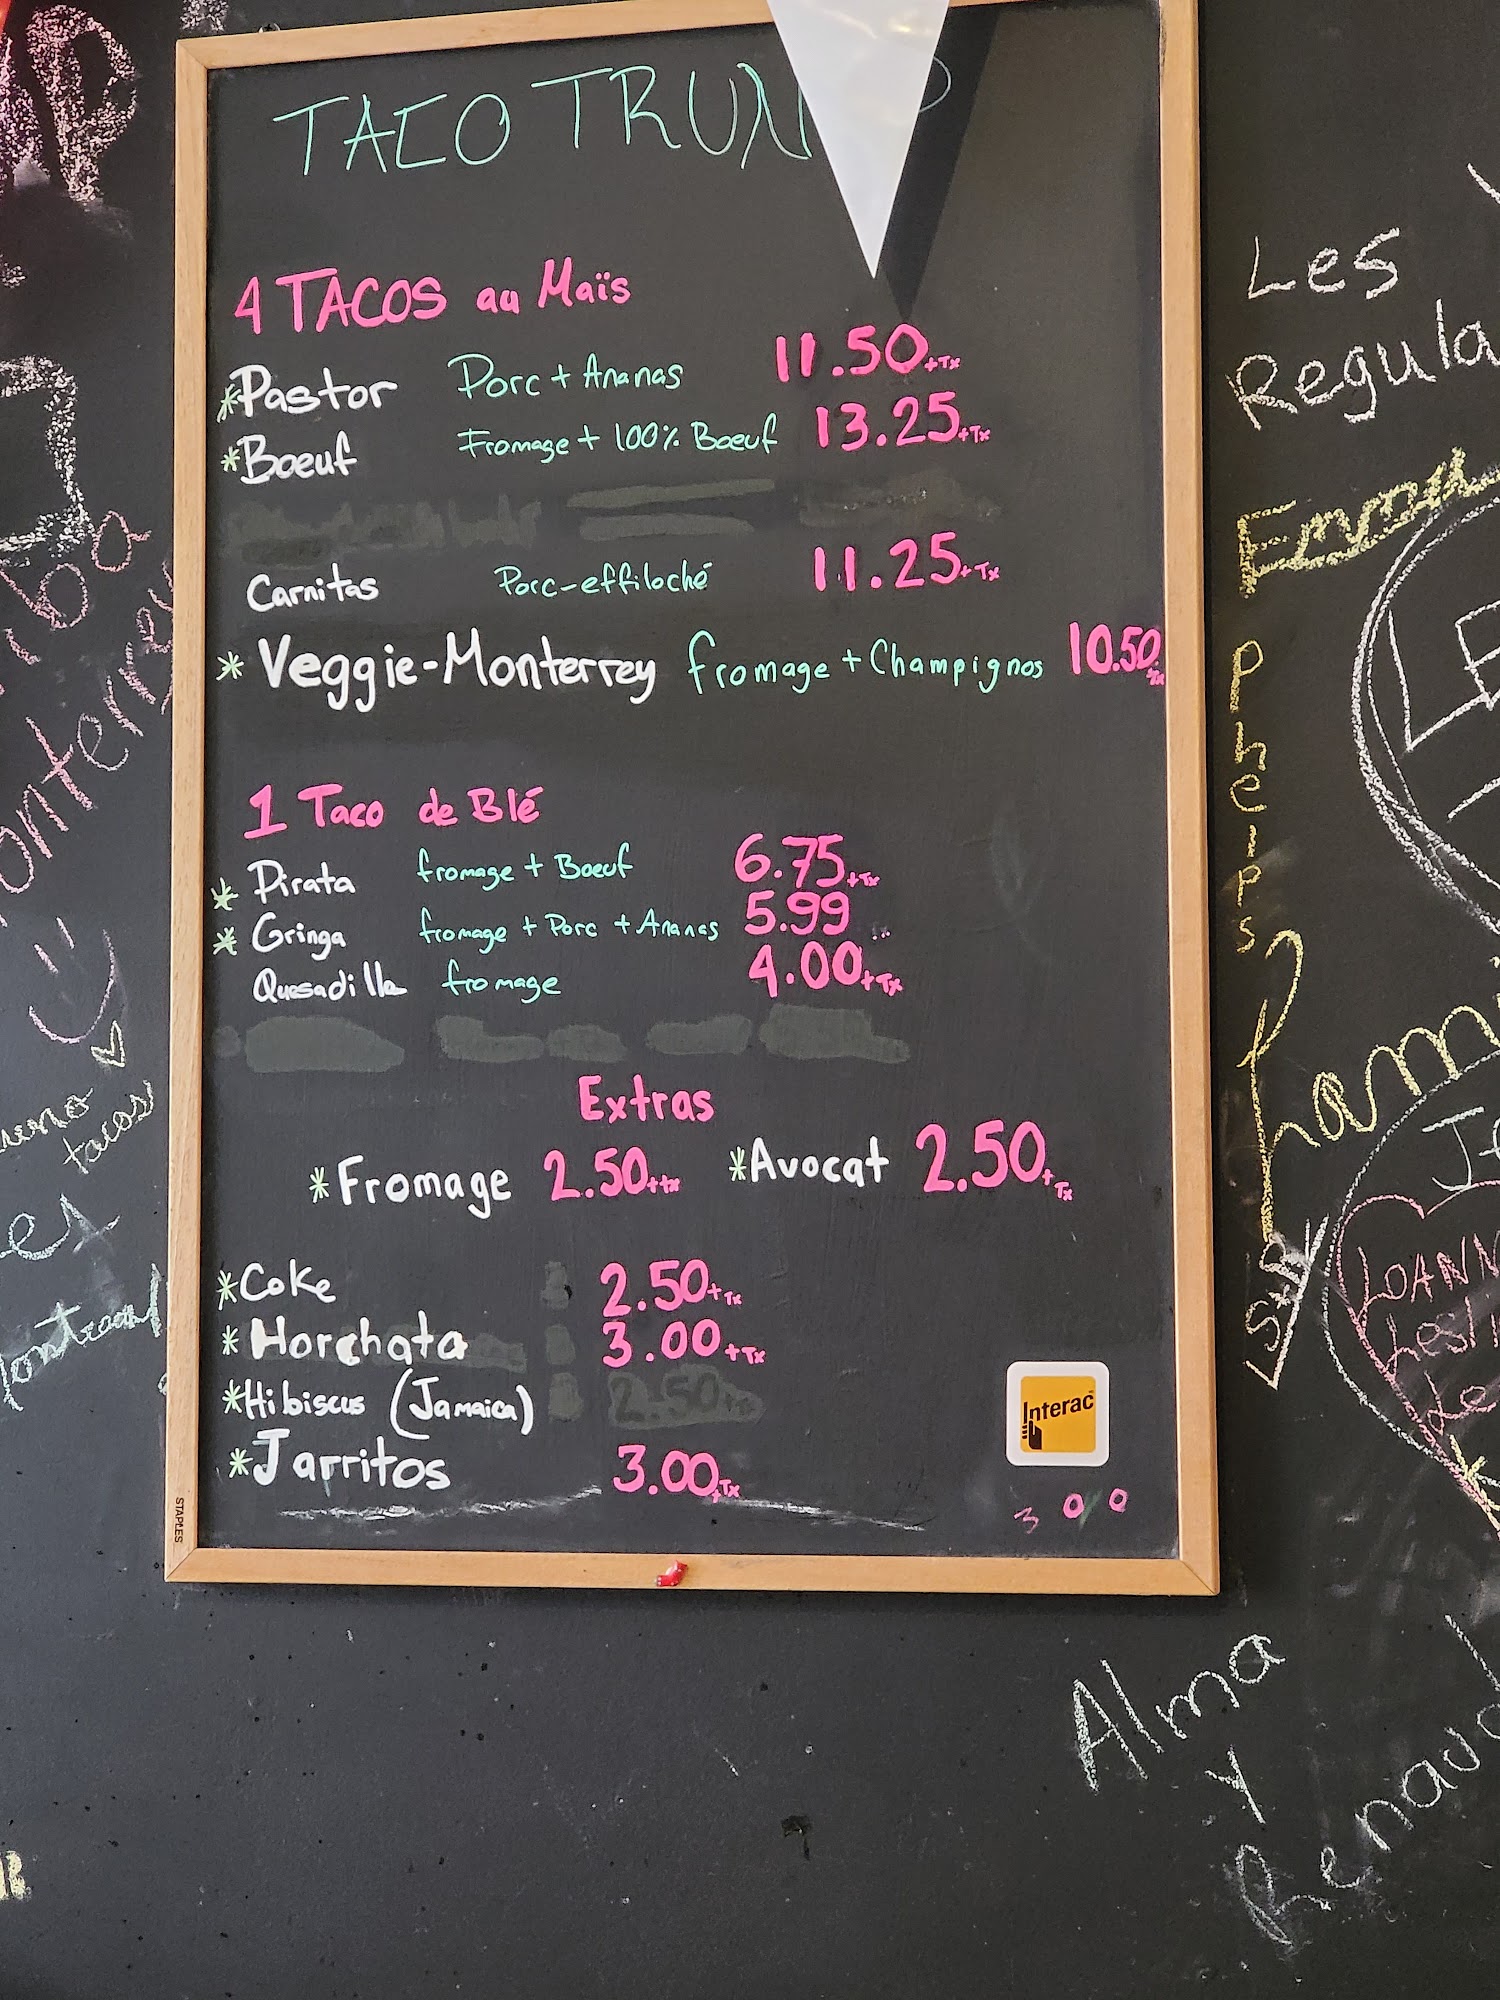 TACO TRUMP
4 TACOS au Maïs
*Pastor Porc + Ananas 11.50+Tx
*Boeuf Fromage + 100% Boeuf 13.25+Tx
Carnitas Porc-effiloché 11.25+Tx
*Veggie-Monterrey fromage + Champignos 10.50+Tx
1 Taco de Blé
*Pirata fromage + Boeuf 6.75+Tx
*Gringa fromage + Porc + Ananas 5.99
Quesadilla fromage 4.00+Tx
Extras
*Fromage 2.50++x *Avocat 2.50+Tx
*Coke 2.50+Tx
*Horchata 3.00+Tx
*Hibiscus (Jamaica) 2.50
*Jarritos 3.00+Tx
Interac
300
STAPLES
Les
Regula
Phelps
tacos
et
Alma
y
Renaud